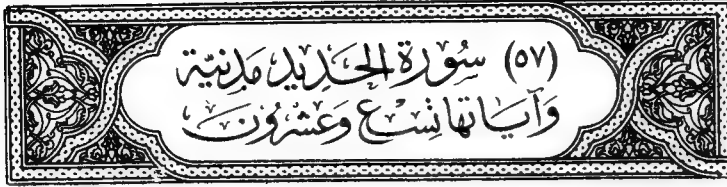 (٥٧) سُورَة الحَدِيد مَدنيَّة
وَآيَاتها تِسْع وَعشرُونَ